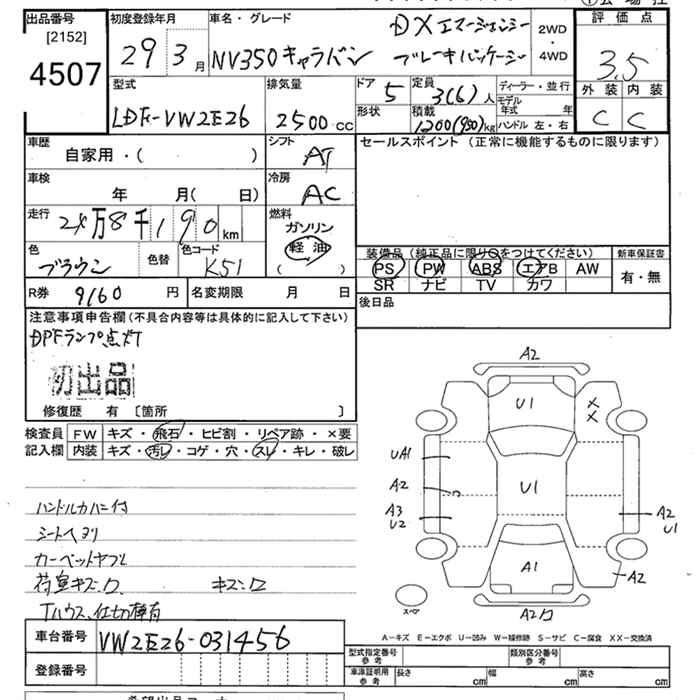 出品番号
[2152]
4507
初度登録年月
29 3 月
車名・グレード
NV350キャラバン
DX エマージェンシー
ブレーキパッケージ
2WD
・
4WD
評価点
3.5
外装 内装
C C
型式
LDF-VW2E26
排気量
2500 cc
ドア
5
形状
定員
3(6)人
積載
1200(950)kg
ディーラー・並行
モデル年式 年
ハンドル 左・右
車歴
自家用・( )
シフト
AT
セールスポイント (正常に機能するものに限ります)
車検
年 月( 日)
冷房
AC
走行
24万8千190km
燃料
ガソリン
軽油
( )
色
ブラウン
色替
色コード
K51
装備品(純正品に限り○をつけてください)
PS PW ABS エアB AW
SR ナビ TV カワ
新車保証書
有・無
R券 9160円
名変期限 月 日
後日品
注意事項申告欄(不具合内容等は具体的に記入して下さい)
DPFランプ点灯
初出品
修復歴 有 〔箇所 〕
検査員 FW キズ・飛石・ヒビ割・リペア跡・×要
記入欄 内装 キズ・汚レ・コゲ・穴・スレ・キレ・破レ
ハンドルカバー付
シートヘタリ
カーペットヤブレ
荷室キズ、ロ キズ・ロ
Tハウス、仕切棒有
A2
U1
X
X
UA1
A2
A3
U2
U1
A2
U1
A1
A2
スペア
A2ロ
A-キズ E-エクボ U-凹み W-補修跡 S-サビ C-腐食 XX-交換済
車台番号 VW2E26-031456
登録番号
型式指定番号
参考
類別区分番号
参考
車庫証明用
参考
長さ cm 幅 cm 高さ cm